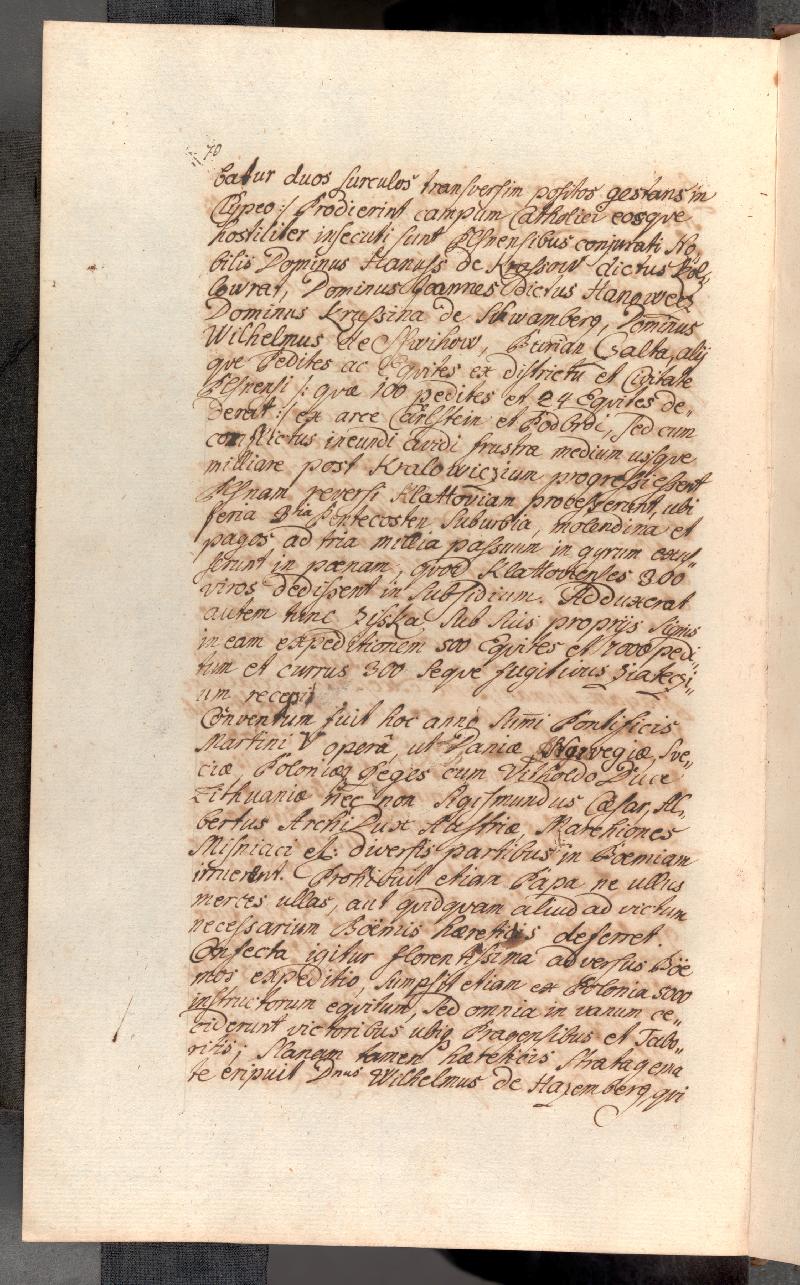 70
batur duos surculos transversim positos gestans in
Clypeo :/ Prodierint campum Catholici eosque
hostiliter insecuti sunt Pilsnensibus conjurati No„
bilis Dominus Hanuss de Krassow dictus Kol„
lowrat, Dominus Joannes dictus Hanowecz
Dominus Krussina de Schwamberg, Dominus
Wilhelmus de Swihow, Burian Calta, alij
que Pedites ac Equites ex districtu et Civitate
Pilsnensi /: quæ 100 pedites et 24 Equites de„
derat :/ ex arce Carlstein et Podbroc, sed cum
conflictus ineundi avidi frustra medium usque
milliare post Kralowiczium progressi essent
Pilsnam reversi Klattoviam processerunt, ubi
feria 3tia Pentecosten suburbia, molendina et
pagos ad tria millia passuum in gyrum exus„
serunt in pœnam, quod Klattovienses 300
viros dedissent in subsidium. Adduxerat
autem tunc Ziska sub suis proprijs signis
in eam expeditionem 500 Equites et 7000 pedi„
tum et currus 300 seque fugitivus Ziateczi„
um recepit
Conventum fuit hoc anno Sum̄i Pontificis
Martini V operâ, ut Daniæ, Norvegiæ, Sve„
ciæ, Poloniæq Reges cum Vitholdo Duce
Lithuaniæ nec non Sigismundus Cæsar, Al„
bertus ArchiDux Austriæ, Marchiones
Misniaci et: diversis partibus in Boemiam
irruerent. Prohibuit etiam Papa ne ullus
merces ullas, aut quidquam aliud ad victum
necessarium Boëmis hæreticis deferret.
Confecta igitur florentissima adversus Boë„
mos expeditio, sumpsit etiam ex Polonia 5000
instructorum equitum, sed omnia in vanum ce„
ciderunt victoribus ubiq Pragensibus et Tabo„
ritis; Slanam tamen hæreticis stratagema
te eripuit Dnus Wilhelmus de Hazemberg, qui